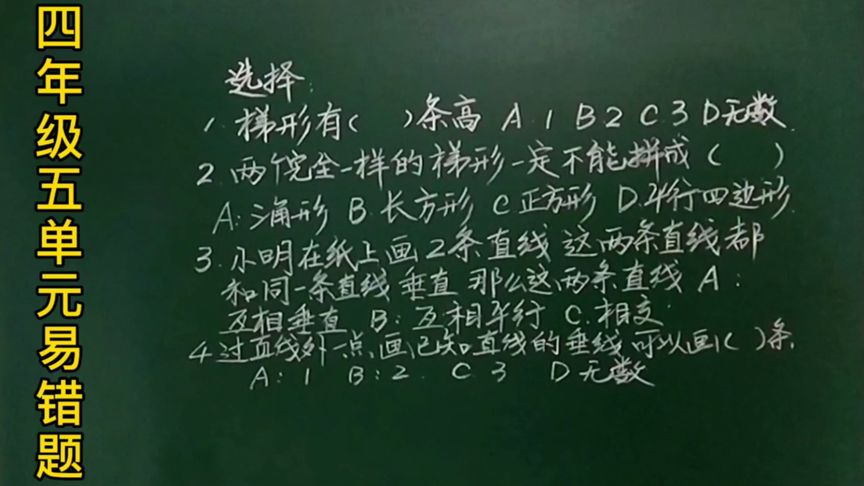 四年级五单元易错题
选择:
1. 梯形有( )条高 A.1 B.2 C.3 D无数
2. 两个完全一样的梯形一定不能拼成( )
A:三角形 B.长方形 C.正方形 D.平行四边形.
3. 小明在纸上画2条直线 这两条直线都
和同一条直线垂直 那么这两条直线 A:
互相垂直 B:互相平行 C.相交.
4.过直线外一点画已知直线的垂线,可以画( )条.
A:1 B:2. C.3 D无数